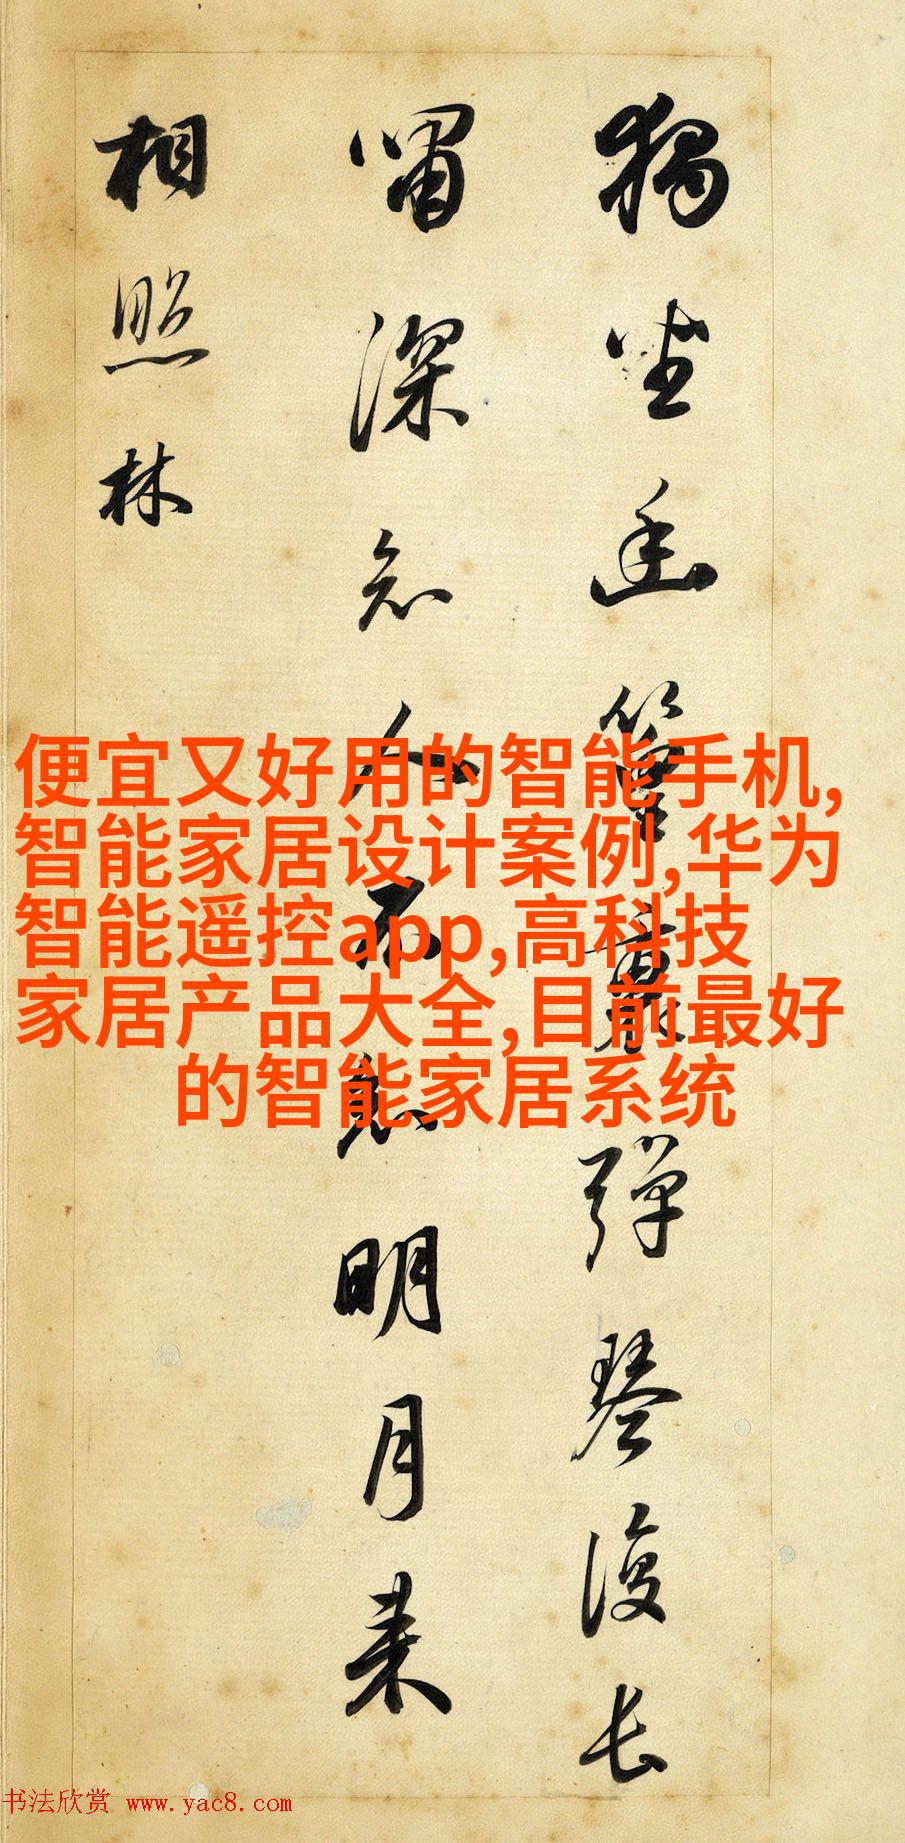 獨坐幽篁裏彈琴復長
嘯深知人不知明月来
相照林
便宜又好用的智能手机,
智能家居设计案例,华为
智能遥控app,高科技
家居产品大全,目前最好
的智能家居系统
书法欣赏 www.yac8.com